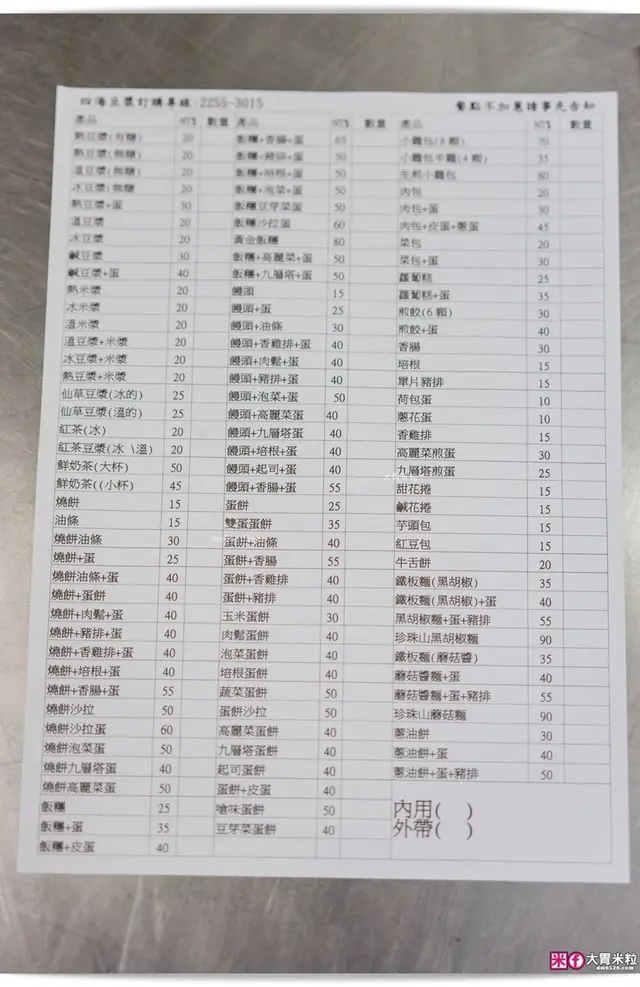 四海豆漿訂購專線:2255-3015
餐點不加蔥請事先告知
產品 NT$ 數量
熱豆漿(有糖) 20
熱豆漿(無糖) 20
溫豆漿(無糖) 20
冰豆漿(無糖) 20
熱豆漿+蛋 30
溫豆漿 20
冰豆漿 20
鹹豆漿 30
鹹豆漿+蛋 40
熱米漿 20
冰米漿 20
溫米漿 20
溫豆漿+米漿 20
冰豆漿+米漿 20
熱豆漿+米漿 20
仙草豆漿(冰的) 25
仙草豆漿(溫的) 25
紅茶(冰) 20
紅茶豆漿(冰\溫) 20
鮮奶茶(大杯) 50
鮮奶茶((小杯) 45
燒餅 15
油條 15
燒餅油條 30
燒餅+蛋 25
燒餅油條+蛋 40
燒餅+蛋餅 40
燒餅+肉鬆+蛋 40
燒餅+豬排+蛋 40
燒餅+香雞排+蛋 40
燒餅+培根+蛋 40
燒餅+香腸+蛋 55
燒餅沙拉 50
燒餅沙拉蛋 60
燒餅泡菜蛋 50
燒餅九層塔蛋 40
燒餅高麗菜蛋 50
飯糰 25
飯糰+蛋 35
飯糰+皮蛋 40
產品 NT$ 數量
飯糰+香腸+蛋 65
飯糰+豬排+蛋 50
飯糰+培根+蛋 50
飯糰+泡菜+蛋 50
飯糰豆芽菜蛋 50
飯糰沙拉蛋 60
黃金飯糰 80
飯糰+高麗菜+蛋 50
飯糰+九層塔+蛋 50
饅頭 15
饅頭+蛋 25
饅頭+油條 30
饅頭+香雞排+蛋 40
饅頭+肉鬆+蛋 40
饅頭+豬排+蛋 40
饅頭+泡菜+蛋 50
饅頭+高麗菜蛋 40
饅頭+九層塔蛋 40
饅頭+培根+蛋 40
饅頭+起司+蛋 40
饅頭+香腸+蛋 55
蛋餅 25
雙蛋蛋餅 35
蛋餅+油條 40
蛋餅+香腸 55
蛋餅+香雞排 40
蛋餅+豬排 40
玉米蛋餅 30
肉鬆蛋餅 40
泡菜蛋餅 40
培根蛋餅 40
蔬菜蛋餅 50
蛋餅沙拉 50
高麗菜蛋餅 40
九層塔蛋餅 40
起司蛋餅 40
蛋餅+皮蛋 40
嗆味蛋餅 50
豆芽菜蛋餅 40
產品 NT$ 數量
小籠包(8顆) 70
小籠包半籠(4顆) 35
生煎小籠包 80
肉包 20
肉包+蛋 30
肉包+皮蛋+蔥蛋 45
菜包 20
菜包+蛋 30
蘿蔔糕 25
蘿蔔糕+蛋 35
煎餃(6顆) 30
煎餃+蛋 40
香腸 30
培根 15
單片豬排 15
荷包蛋 10
蔥花蛋 10
香雞排 15
高麗菜煎蛋 30
九層塔煎蛋 25
甜花捲 15
鹹花捲 15
芋頭包 15
紅豆包 15
牛舌餅 20
鐵板麵(黑胡椒) 35
鐵板麵(黑胡椒)+蛋 40
黑胡椒麵+蛋+豬排 55
珍珠山黑胡椒麵 90
鐵板麵(蘑菇醬) 35
蘑菇醬麵+蛋 40
蘑菇醬麵+蛋+豬排 55
珍珠山蘑菇麵 90
蔥油餅 30
蔥油餅+蛋 40
蔥油餅+蛋+豬排 50
內用( )
外帶( )
米 f 大胃米粒
dm0520.com